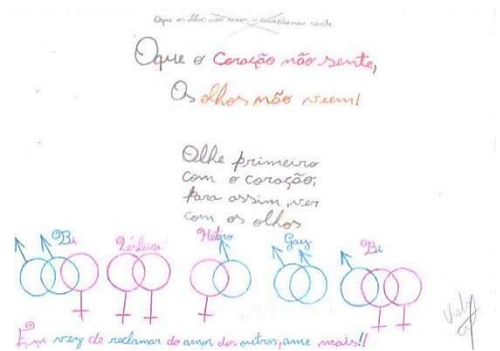 Oque os olhos não veem o coração não sente
Oque o Coração não sente,
Os olhos não veem!
Olhe primeiro
com o coração,
para assim, ver
com os olhos
Bi Lésbica Hétero Gay Bi
Em vez de reclamar do amor dos outros, ame mais!!